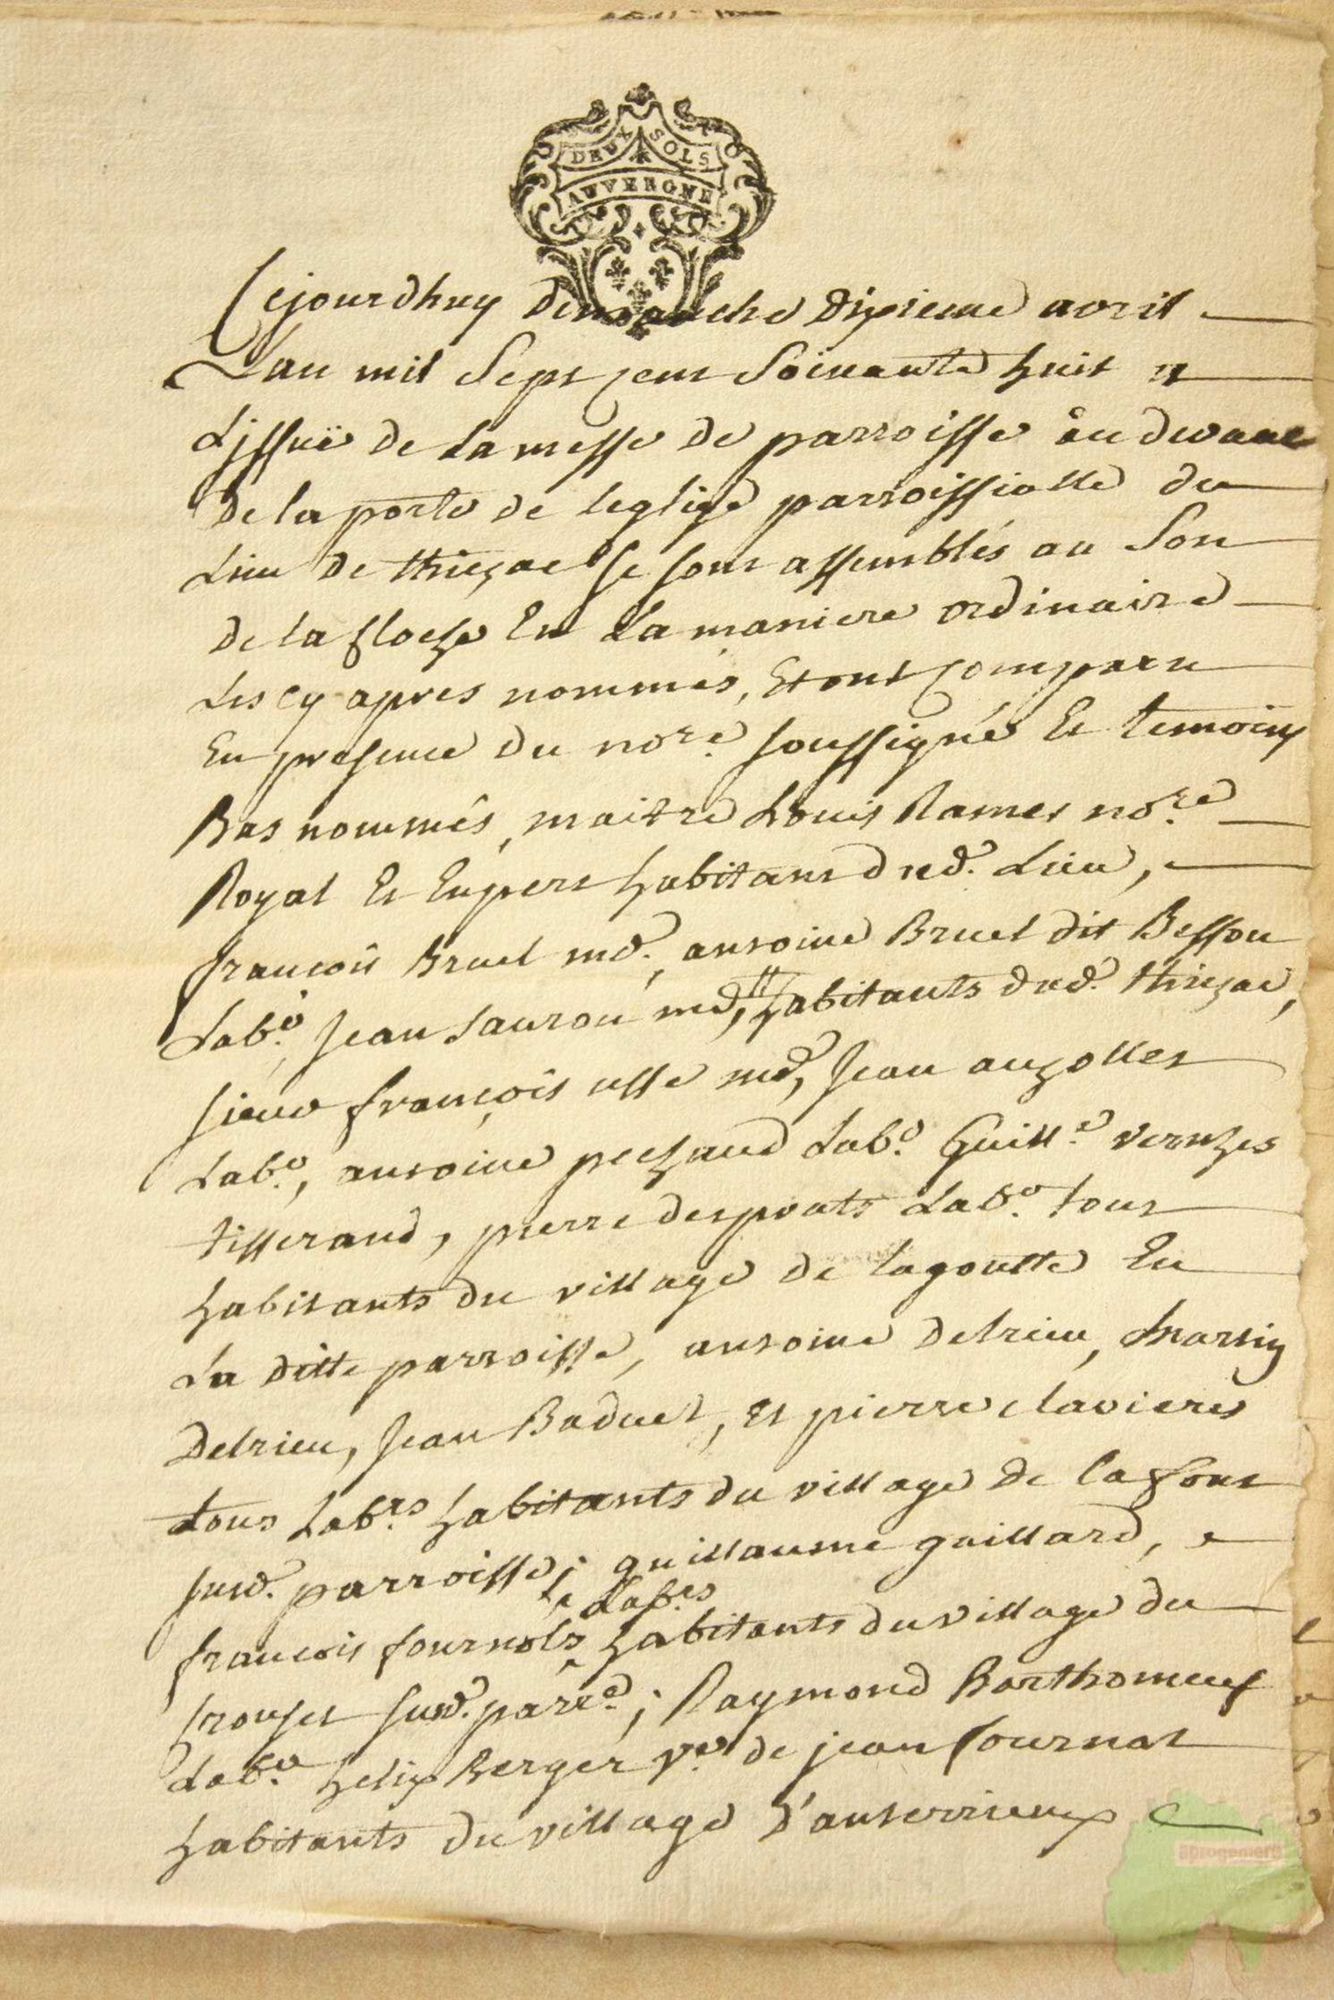 DEUX SOLS
AUVERGNE
Cejourdhuy dimanche dixieme avril
Lan mil sept cent soixante huit a
Lissuë de La messe de parroisse au devant
De la porte de leglize parroissialle du
Lieu de thiezac se sont assemblés au son
De la cloche En La maniere ordinaire
Les cy apres nommés, Et ont comparu
En presence du nore. soussigné Et temoins
Bas nommés, maitre Louis Rames nore.
Royal Et Expert habitant dud. Lieu,
francois Bruel md., antoine Bruel dit Besson
Labr. Jean Lauron md, tt habitants dud. thiezac,
sieur françois usse md, Jean auzolles
Labr., antoine pechaud Labr. Guille. vernhes
tisserand, pierre desprats Labr. tous
habitants du village de lagoutte En
La ditte parroisse, antoine Delrieu, martin
Delrieu, Jean Baduel, Et pierre clavieres
tous Labrs. habitants du village de lafont
susd. parroisse; guillaume gaillard, e
Labrs
francois fournols habitants du village du
susd. parre.; Raymond Barthomeuf
Labr. helix Berger ve. de jean fournol
habitants du village
aprogemere